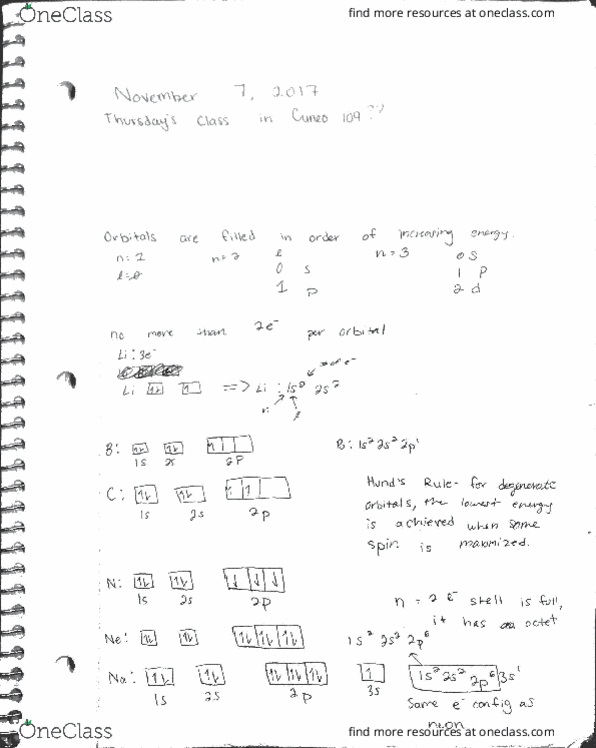 OneClass
find more resources at oneclass.com
November 7, 2017
Thursday's class in Cuneo 109 ??
Orbitals are filled in order of increasing energy.
n=2 l n=3 0 s
0 s 1 p
1 p 2 d
no more than 2e⁻ per orbital
Li: 3e⁻
Li ⥮ ↿ => Li : 1s² 2s²
# of e⁻
n l
B: ⥮ ⥮ ↿ B: 1s² 2s² 2p¹
1s 2s 2p
C: ⥮ ⥮ ↿ ↿
1s 2s 2p
Hund's Rule - for degenerate
orbitals, the lowest energy
is achieved when same
spin is maximized.
N: ⥮ ⥮ ↓ ↓ ↓
1s 2s 2p
n = 2 e⁻ shell is full,
it has an octet
Ne: ⥮ ⥮ ⥮ ⥮ ⥮ 1s² 2s² 2p⁶
Na: ⥮ ⥮ ⥮ ⥮ ⥮ ↿ 1s² 2s² 2p⁶ 3s¹
1s 2s 2p 3s
Same e⁻ config as
neon
OneClass
find more resources at oneclass.com